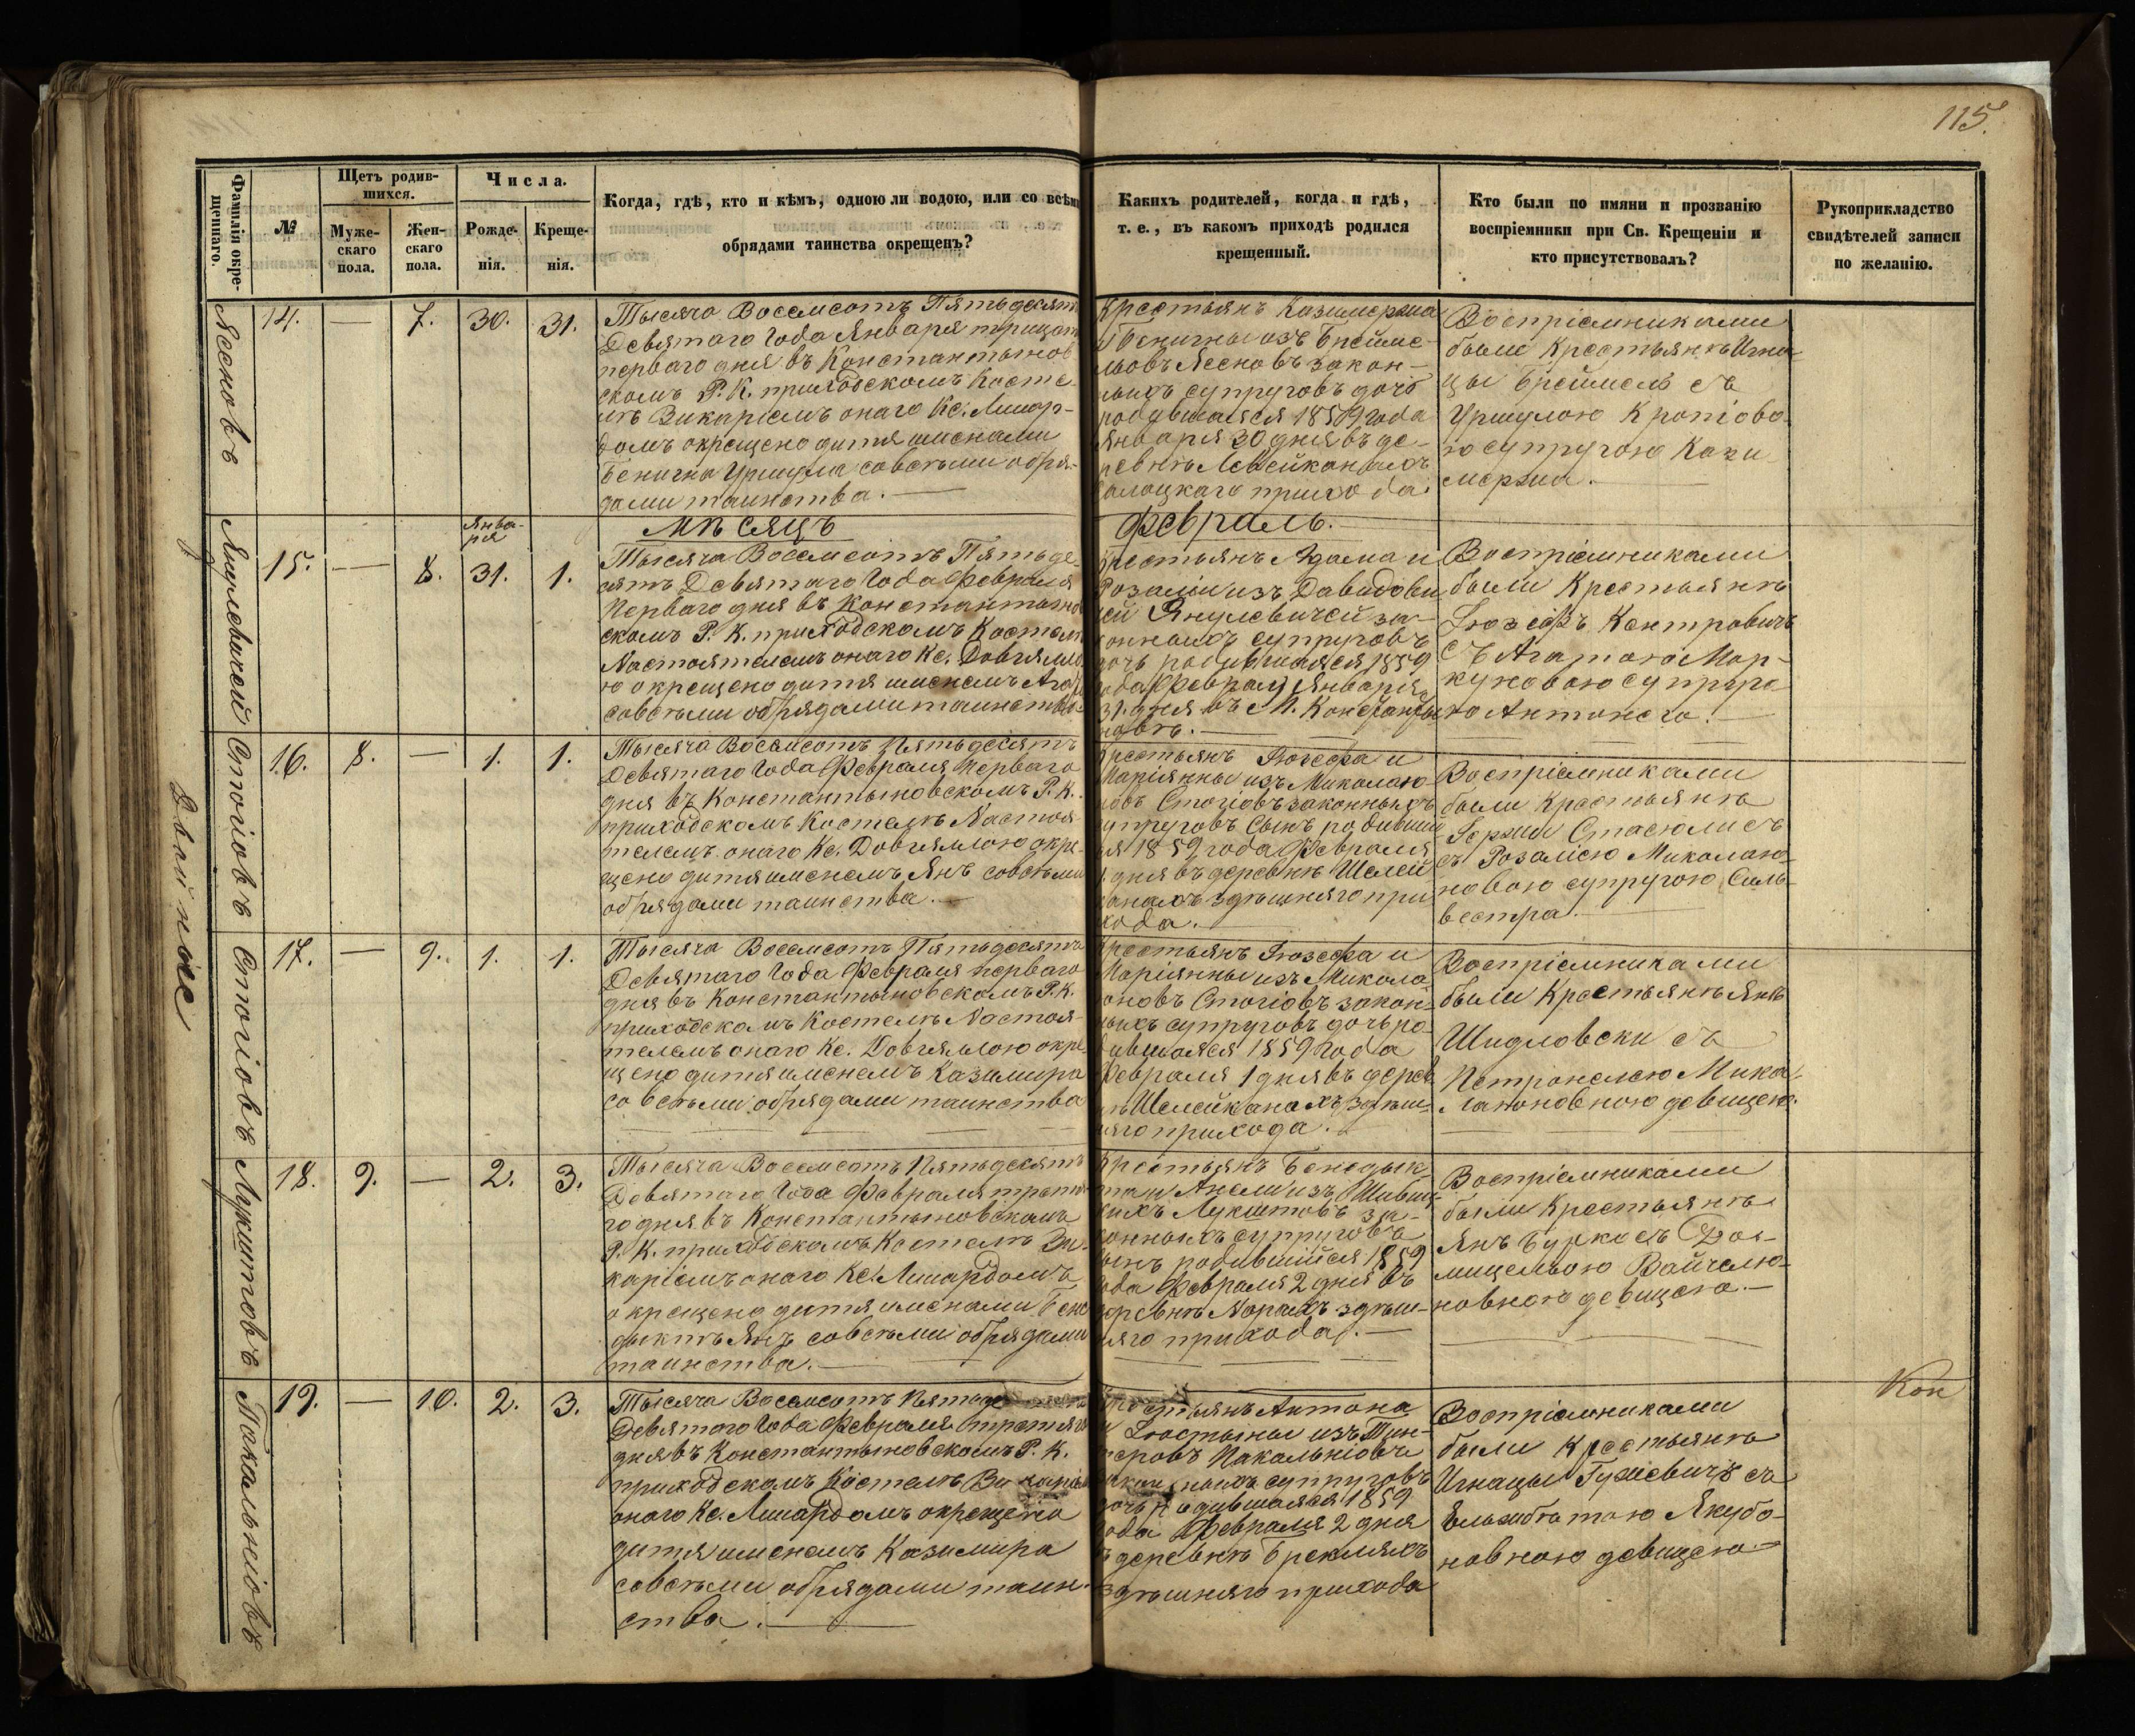 115.
Фамилія окре-
щеннаго.
№
Щетъ родив-
шихся.
Муже-
скаго
пола.
Жен-
скаго
пола.
Числа.
Рожде-
нія.
Креще-
нія.
Когда, гдѣ, кто и кѣмъ, одною ли водою, или со всѣми
обрядами таинства окрещенъ?
Какихъ родителей, когда и гдѣ,
т. е., въ какомъ приходѣ родился
крещенный.
Кто были по имяни и прозванію
воспріемники при Св. Крещеніи и
кто присутствовалъ?
Рукоприкладство
свидѣтелей записи
по желанію.
Ясновъ
14. — 7. 30. 31.
Тысяча Восемсотъ Пятьдесятъ
Девятаго Года Января трицать
перваго дня въ Константынов
скомъ Р. К. приходскомъ Косте-
лѣ Викаріемъ онаго Кс. Линар-
домъ окрещено дитя именами
Бенигна Уршуля совсѣми обря-
дами таинства. —
Крестьянъ Казимержа
и Бенигны изъ
Ясновъ закон-
ныхъ супруговъ дочь
родившаяся 1859 года
Января 30 дня въ де-
ревнѣ
прихода.
Воспріемниками
были Крестьянѣ Игна-
цы Бреймель съ
Уршулою
ю супругою Кази
мержа. —
Янулевичей
Янва-
ря
МѢСЯЦЪ
Февраль. —
15. — 8. 31. 1.
Тысяча Восемсотъ Пятьде-
сятъ Девятаго Года Февраля
Перваго дня въ Константынов
скомъ Р. К. приходскомъ Костелѣ
Настоятелемъ онаго Кс. Довгялло
ю окрещено дитя именемъ Агата
совсѣми обрядами таинства.
Крестьянъ Адама и
Розаліи изъ Давидови
чей Янулевичей за-
конныхъ супруговъ
дочь родившаяся 1859
года Января
31. дня въ М. Константы
новѣ. —
Воспріемниками
были Крестьянѣ
Іозефъ Контровичъ
съ Агатою Мар-
куновою супруго
ю Антонего. —
Стогіовъ
16. 8. — 1. 1.
Тысяча Восемсотъ Пятьдесятъ
Девятаго Года Февраля Перваго
дня въ Константыновскомъ Р. К.
приходскомъ Костелѣ Настоя
телемъ онаго Кс. Довгяллою окре-
щено дитя именемъ Янъ совсѣми
обрядами таинства. —
Крестьянъ Іозефа и
Маріянны изъ Миколаю-
новъ Стогіовъ законныхъ
супруговъ Сынъ родивши
ся 1859 года Февраля
1. дня въ деревнѣ Шелей
канахъ здѣшняго при
хода.
Воспріемниками
были Крестьянѣ
съ Розаліею Миколаю-
новою супругою Силь-
вестра. —
Стогіовъ
17. — 9. 1. 1.
Тысяча Восемсотъ Пятьдесятъ
Девятаго Года Февраля перваго
дня въ Константыновскомъ Р. К.
приходскомъ Костелѣ Настоя-
телемъ онаго Кс. Довгяллою окре-
щено дитя именемъ Казимира
совсѣми обрядами таинства
Крестьянъ Іозефа и
Маріянны изъ Микола
юновъ Стогіовъ закон-
ныхъ супруговъ дочь ро-
дившаяся 1859 года
Февраля 1 дня въ дерев
нѣ Шелейканахъ здѣш-
няго прихода.
Воспріемниками
были Крестьянѣ Янъ
Шидловски съ
Петронелею Мико-
лаюновною девицею.
Лукштовъ
18. 9. — 2. 3.
Тысяча Восемсотъ Пятьдесятъ
Девятаго Года Февраля третя-
го дня въ Константыновскомъ
Р. К. приходскомъ Костелѣ Ви-
каріемъ онаго Кс. Линардомъ
окрещено дитя именами Бене
дыктъ Янъ совсѣми обрядами
таинства. —
Крестьянъ Бенедык
та и Анели изъ
Лукштовъ за-
конныхъ супруговъ
сынъ родившийся 1859
года Февраля 2 дня въ
деревнѣ Норахъ здѣш-
няго прихода. —
Воспріемниками
были Крестьянѣ
Янъ Бурко съ До-
мицелью Вайчелю-
новною девицею. —
Покальніовъ
19. — 10. 2. 3.
Тысяча Восемсотъ Пятьде
Девятаго Года Февраля третяго
дня въ Константыновскомъ Р. К.
приходскомъ Костелѣ Викаріемъ
онаго Кс. Линардомъ окрещено
дитя именемъ Казимира
совсѣми обрядами таин-
ства. —
Крестьянъ Антона
и Юстыны изъ
Пакальніовъ
законныхъ супруговъ
дочь родившаяся 1859
года Февраля 2 дня
въ деревнѣ Брекляхъ
здѣшняго прихода
Воспріемниками
были Крестьянѣ
Игнацы Гужевичъ съ
Ельжбѣтою Якубо-
новною девицею —
Двайное
Кон